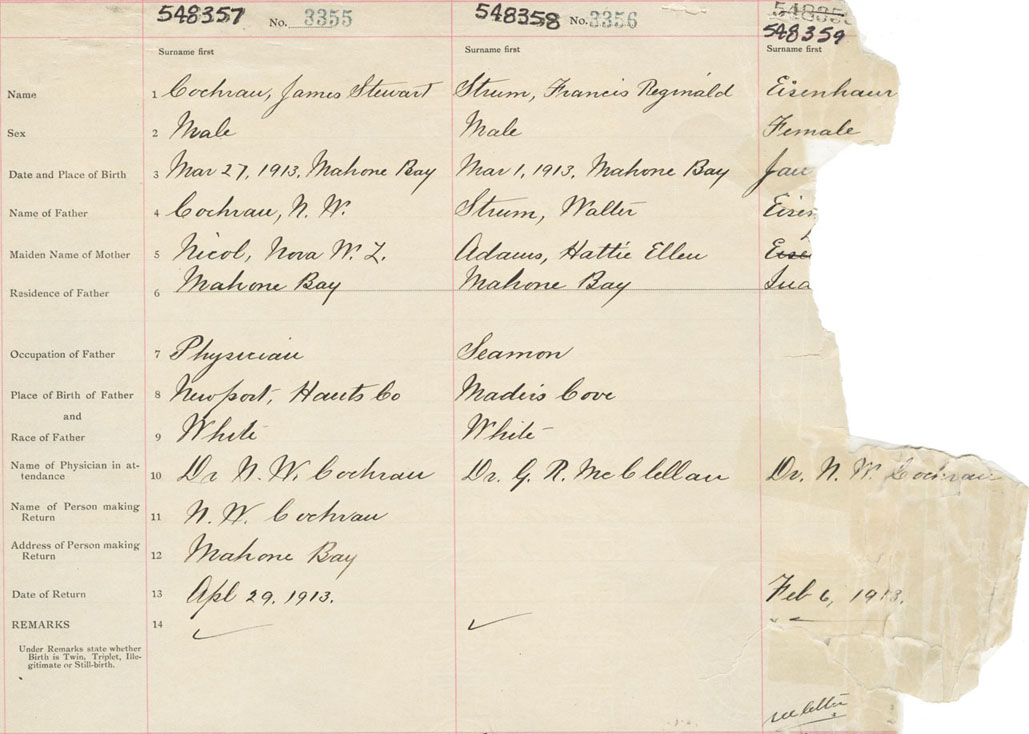 548357 No. 3355 548358 No. 3356 548359
Surname first Surname first Surname first
Name 1 Cochran, James Stewart Strum, Francis Reginald Eisenhaur
Sex 2 Male Male Female
Date and Place of Birth 3 Mar 27, 1913, Mahone Bay Mar 1, 1913, Mahone Bay Jan
Name of Father 4 Cochran, N. W. Strum, Walter Eisen
Maiden Name of Mother 5 Nicol, Nova W. Z. Adams, Hattie Ellen
Residence of Father 6 Mahone Bay Mahone Bay
Occupation of Father 7 Physician Seamon
Place of Birth of Father 8 Newport, Hants Co Maders Cove
and
Race of Father 9 White White
Name of Physician in at-
tendance 10 Dr N. W. Cochran Dr. G. R. McClellan Dr. N. W. Cochran
Name of Person making
Return 11 N. W. Cochran
Address of Person making
Return 12 Mahone Bay
Date of Return 13 Apl 29, 1913. Feb 6, 1913.
REMARKS 14
Under Remarks state whether
Birth is Twin, Triplet, Ille-
gitimate or Still-birth.
see letter